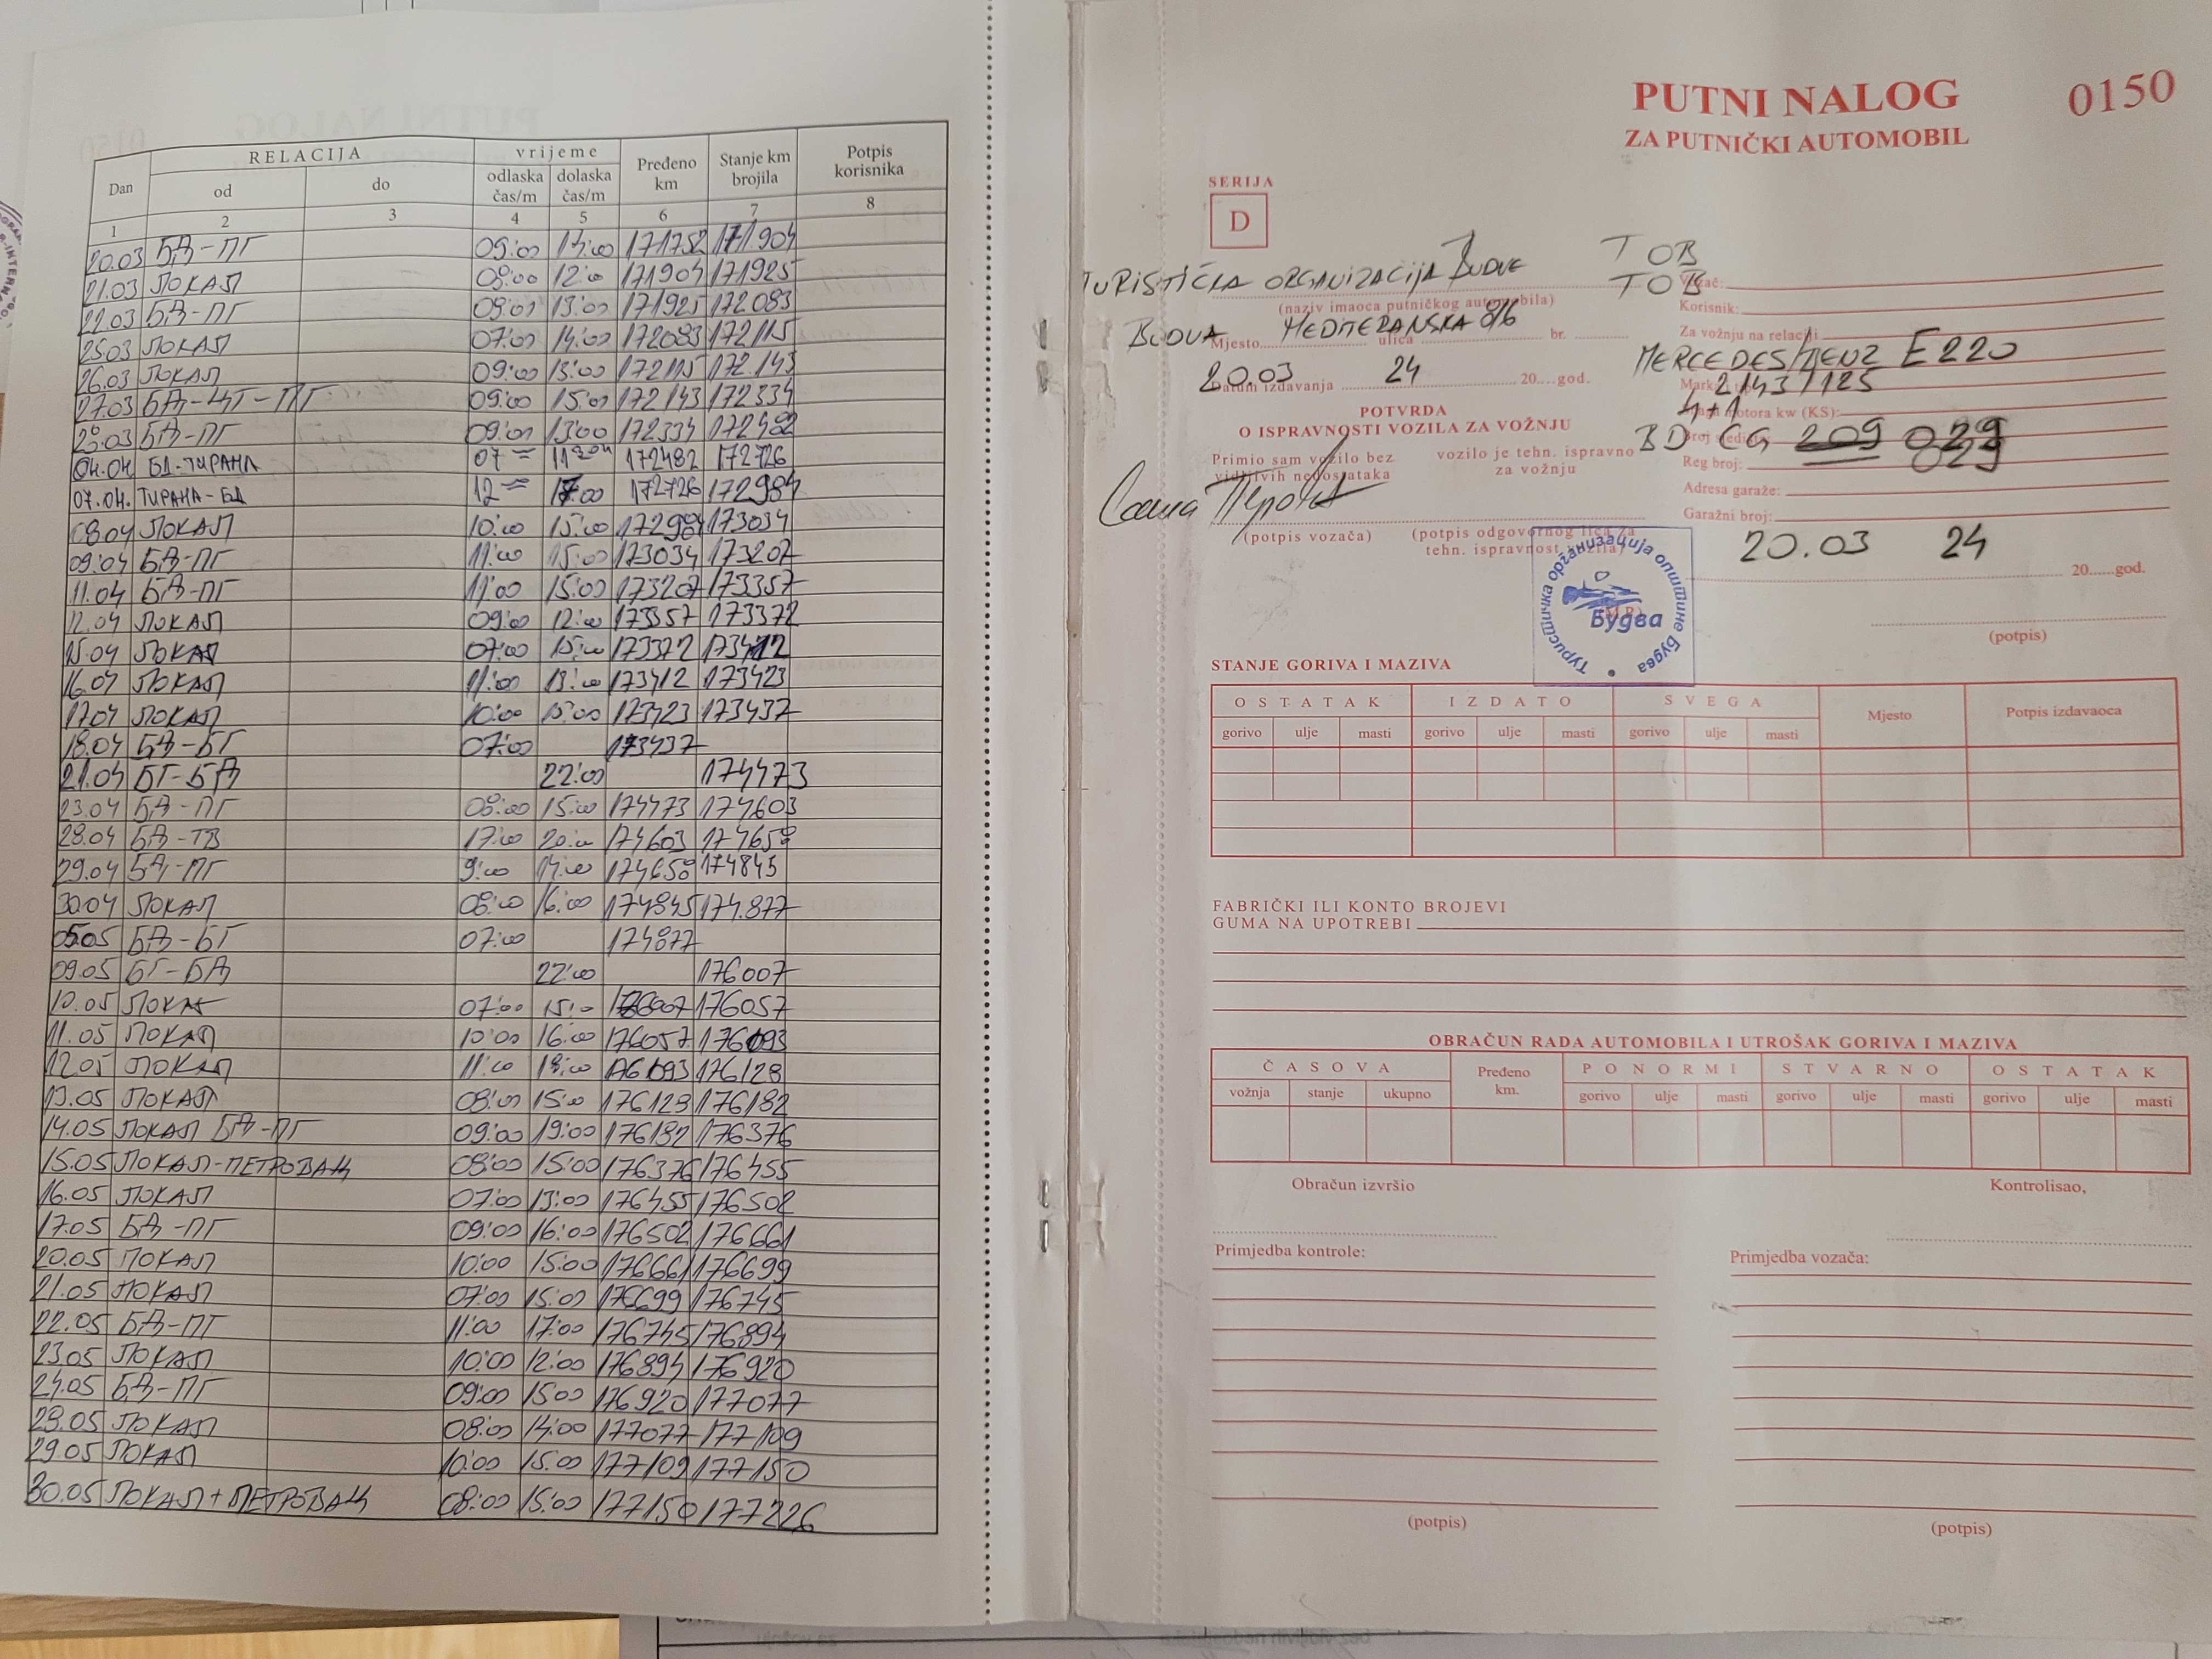 RELACIJA
vrijeme
Dan od do odlaska čas/m dolaska čas/m Pređeno km Stanje km brojila Potpis korisnika
1 2 3 4 5 6 7 8
20.03 БД-ПГ 09:00 14:00 171752 171904
21.03 ЛОКАЛ 08:00 12:00 171904 171925
22.03 БД-ПГ 09:00 13:00 171925 172083
25.03 ЛОКАЛ 07:00 14:00 172083 172115
26.03 ЛОКАЛ 09:00 13:00 172115 172.143
27.03 БД-ЦТ-ПГ 09:00 15:00 172143 172334
28.03 БД-ПГ 09:00 13:00 172334 172482
04.04. БД-ТИРАНА 07 11 172482 172726
07.04. ТИРАНА-БД 12 17:00 172726 172984
08.04 ЛОКАЛ 10:00 15:00 172984 173034
09.04 БД-ПГ 11:00 15:00 173034 173207
11.04 БД-ПГ 11:00 15:00 173207 173357
12.04 ЛОКАЛ 09:00 12:00 173357 173372
15.04 ЛОКАЛ 07:00 15:00 173372 173412
16.04 ЛОКАЛ 11:00 13:00 173412 173423
17.04 ЛОКАЛ 10:00 15:00 173423 173437
18.04 БД-БГ 07:00 173437
21.04 БГ-БД 22:00 174473
23.04 БД-ПГ 08:00 15:00 174473 174603
28.04 БД-ТВ 17:00 20:00 174603 174658
29.04 БД-ПГ 9:00 14:00 174658 174845
30.04 ЛОКАЛ 08:00 16:00 174845 174.877
05.05 БД-БГ 07:00 174877
09.05 БГ-БД 22:00 176007
10.05 ЛОКАЛ 07:00 15:00 176007 176057
11.05 ЛОКАЛ 10:00 16:00 176057 176093
12.05 ЛОКАЛ 11:00 18:00 176093 176128
13.05 ЛОКАЛ 08:00 15:00 176128 176182
14.05 ЛОКАЛ БД-ПГ 09:00 19:00 176182 176376
15.05 ЛОКАЛ-ПЕТРОВАЦ 08:00 15:00 176376 176455
16.05 ЛОКАЛ 07:00 13:00 176455 176502
17.05 БД-ПГ 09:00 16:00 176502 176661
20.05 ЛОКАЛ 10:00 15:00 176661 176699
21.05 ЛОКАЛ 07:00 15:00 176699 176745
22.05 БД-ПГ 11:00 17:00 176745 176894
23.05 ЛОКАЛ 10:00 12:00 176894 176920
24.05 БД-ПГ 09:00 15:00 176920 177077
28.05 ЛОКАЛ 08:00 14:00 177077 177109
29.05 ЛОКАЛ 10:00 15:00 177109 177150
30.05 ЛОКАЛ+ПЕТРОВАЦ 08:00 15:00 177150 177226
PUTNI NALOG 0150
ZA PUTNIČKI AUTOMOBIL
SERIJA
D
TURISTIČKA ORGANIZACIJA BUDVE
(naziv imaoca putničkog automobila)
BUDVA MEDITERANSKA 8/6
Mjesto ulica br.
20.03 24
Datum izdavanja 20....god.
POTVRDA
O ISPRAVNOSTI VOZILA ZA VOŽNJU
Primio sam vozilo bez vidljivih nedostataka
vozilo je tehn. ispravno za vožnju
(potpis vozača)
(potpis odgovornog lica za tehn. ispravnost vozila)
TOB
Vozač:
TOB
Korisnik:
Za vožnju na relaciji
MERCEDES BENZ E220
Marka
2143/125
Snaga motora kw (KS):
4+1
Broj sjedišta
BD CG 209 029
029
Reg broj:
Adresa garaže:
Garažni broj:
20.03 24
20......god.
(M.P.)
Туристичка организација општине Будва
Будва
(potpis)
STANJE GORIVA I MAZIVA
OSTATAK IZDATO SVEGA Mjesto Potpis izdavaoca
gorivo ulje masti gorivo ulje masti gorivo ulje masti
FABRIČKI ILI KONTO BROJEVI
GUMA NA UPOTREBI
OBRAČUN RADA AUTOMOBILA I UTROŠAK GORIVA I MAZIVA
ČASOVA Pređeno km. PO NORMI STVARNO OSTATAK
vožnja stanje ukupno gorivo ulje masti gorivo ulje masti gorivo ulje masti
Obračun izvršio Kontrolisao,
Primjedba kontrole: Primjedba vozača:
(potpis) (potpis)